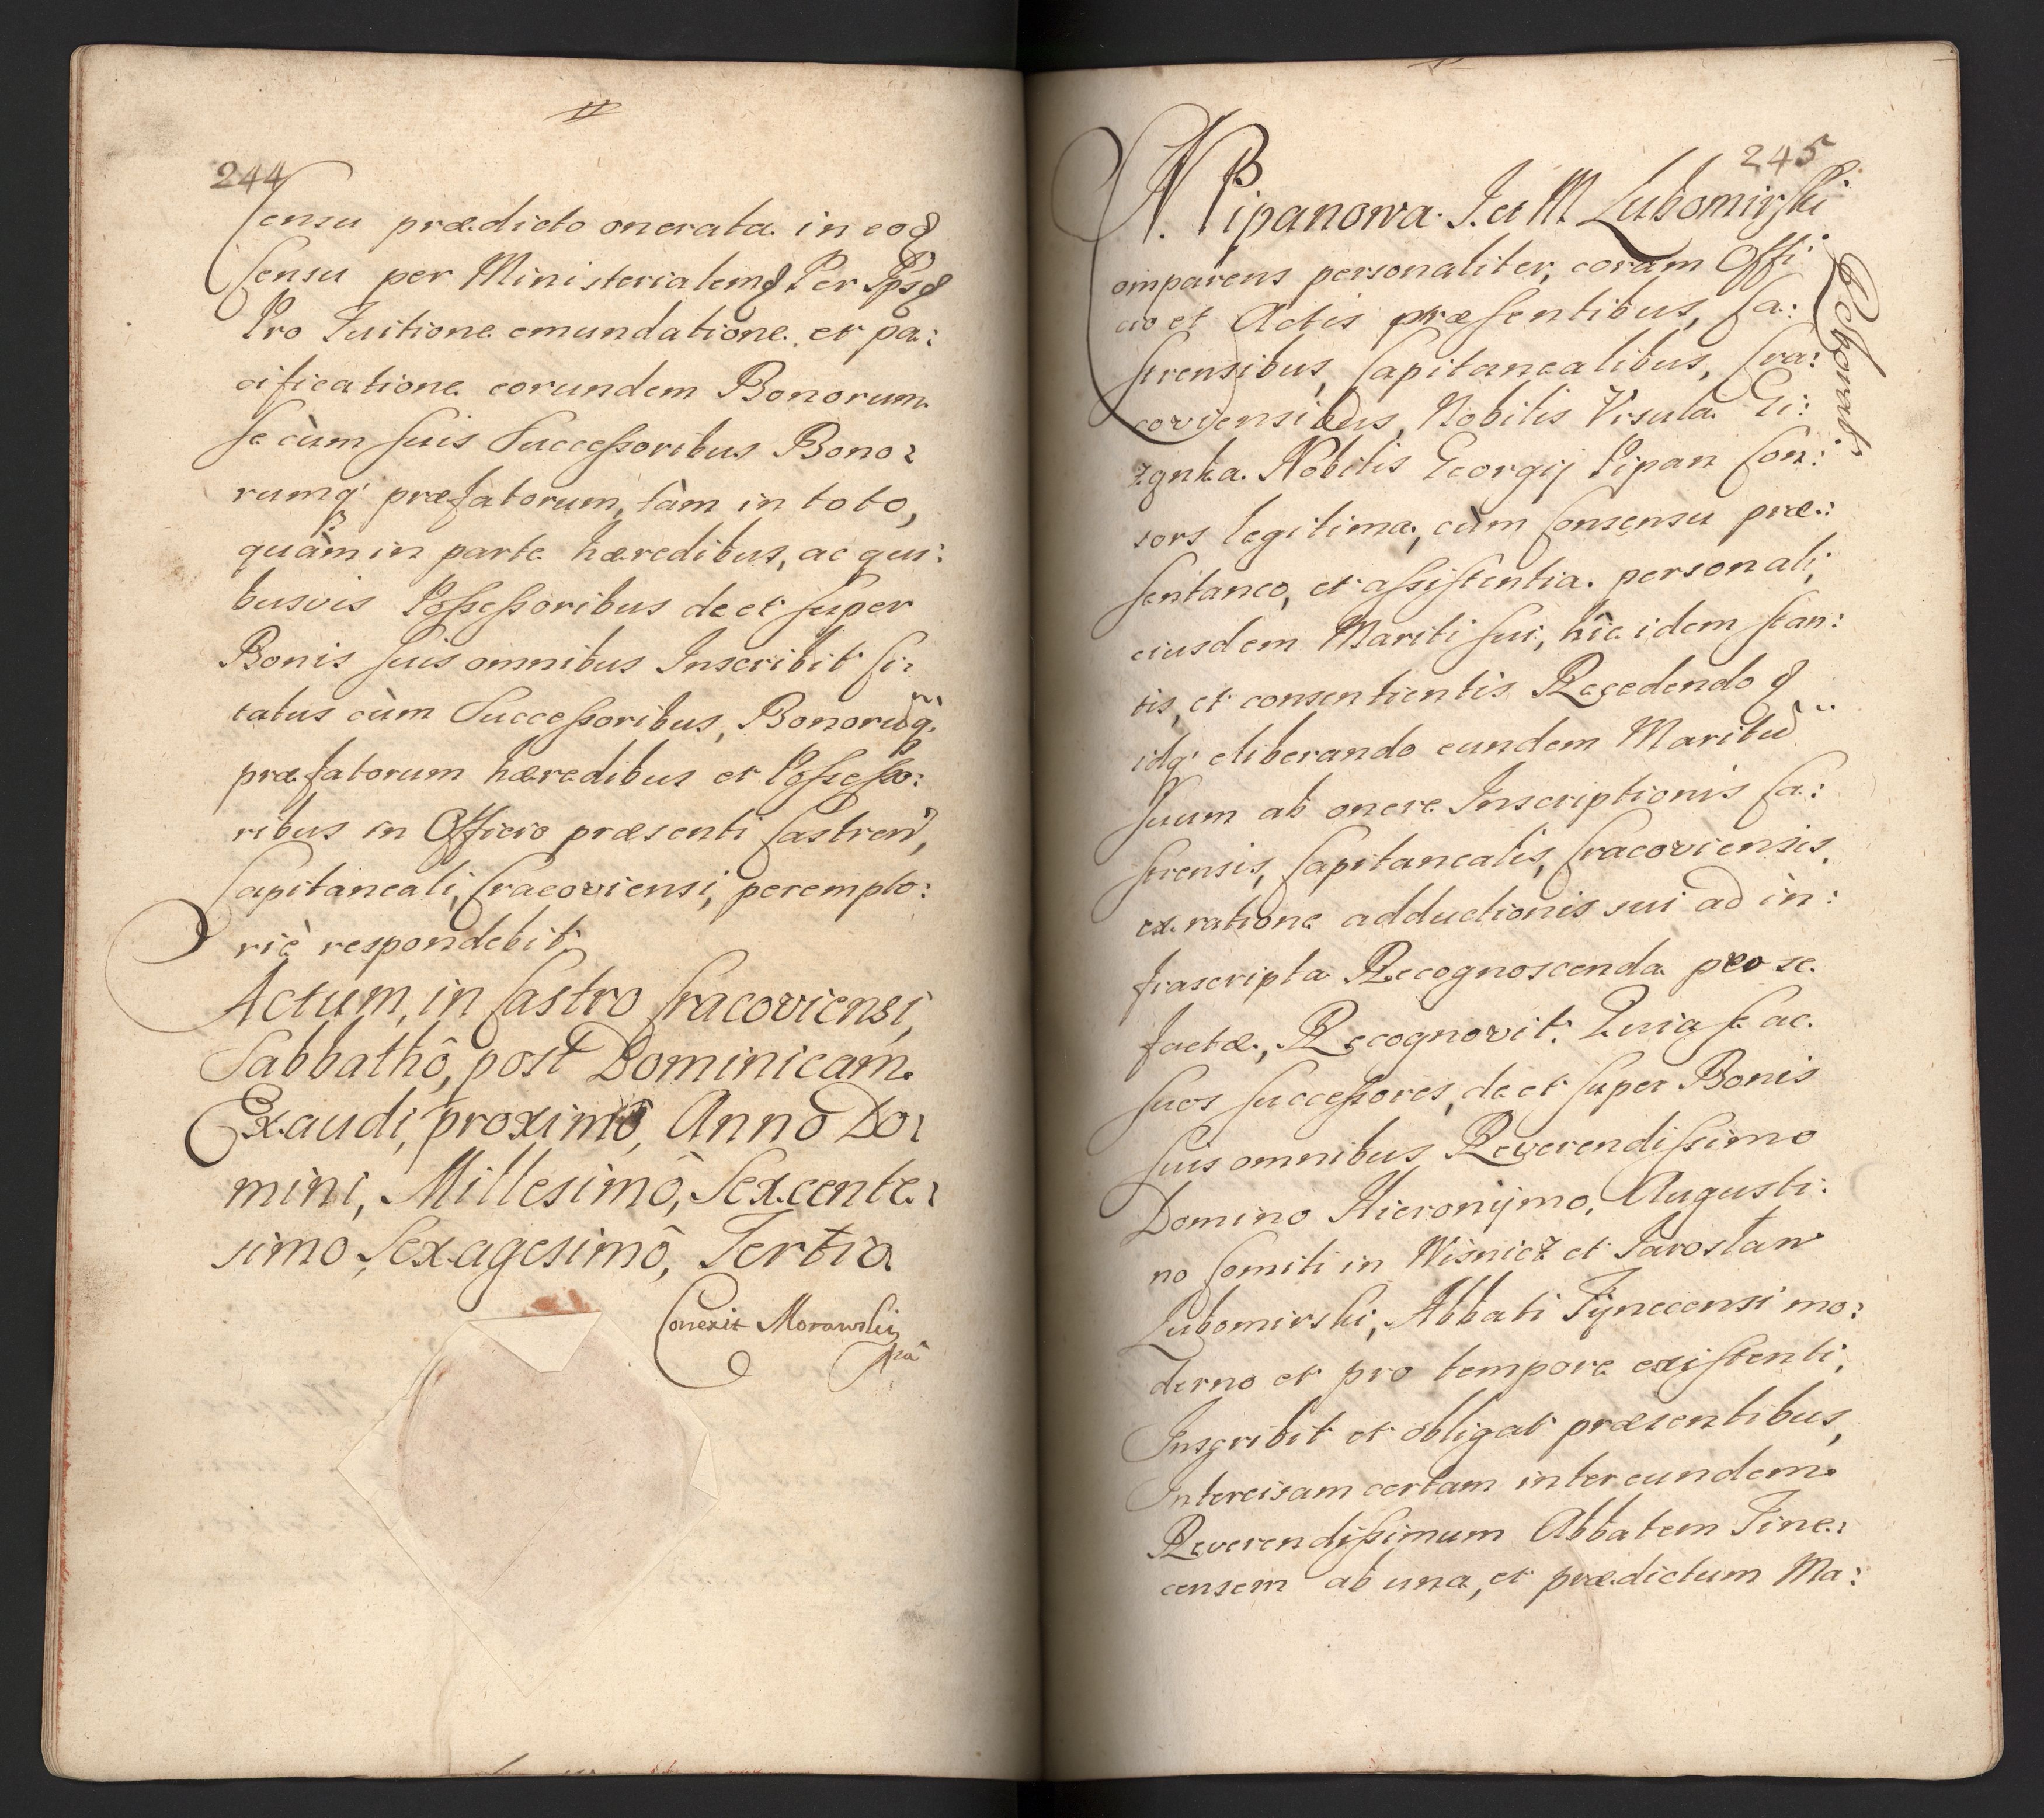 244
Censu prædicto onerata in eod
Censu per Ministerialem
Pro Tuitione emundatione et pa:
cificatione eorundem Bonorum
se cùm suis Successoribus Bono:
rumq præfatorum, tàm in toto,
quàm in parte hæredibus, ac qui:
busvis Possessoribus de et super
Bonis suis omnibus Inscribit Ci:
tatus cùm Successoribus, Bonorũq
præfatorum hæredibus et Possesso:
ribus in Officio præsenti Castren,
Capitaneali, Cracoviensi, perempto:
riè respondebit.
Actum, in Castro Cracoviensi,
Sabbathô, post Dominicam
Exaudi, proximô, Annô Do:
mini, Millesimô, Sexcente:
simo, Sexagesimô, Tertio
Conexit Morawski
245
N. Pipanowa. I. et M Lubomirski
Roboravit
omparens personaliter, coram Offi:
cio et Actis præsentibus, Ca:
strensibus, Capitanealibus, Cra:
coviensibus, Nobilis Vrsula Gi:
zanka Nobilis Georgij Pipan Con:
sors legitima, cùm Consensu præ:
sentaneo, et assistentia personali,
eiusdem Mariti sui, hìc idem stan:
tis, et consentientis Recedendo
idq eliberando eundem Maritũ
suum ab onere Inscriptionis Ca:
strensis, Capitanealis, Cracoviensis,
ex ratione adductionis sui ad in:
frascripta Recognoscenda pro se
factæ, Recognovit. Quia se ac
suos successores, de et super Bonis
suis omnibus Reverendissimo
Domino Hieronijmo, Augusti:
no Comiti in Wisnicz et Iaroslaw
Lubomirski, Abbati Tÿnecensi mo:
derno et pro tempore existenti,
Inscribit et obligat præsentibus,
Intercisam certam inter eundem
Reverendissimum Abbatem Tine:
censem ab una, et prædictum Ma: